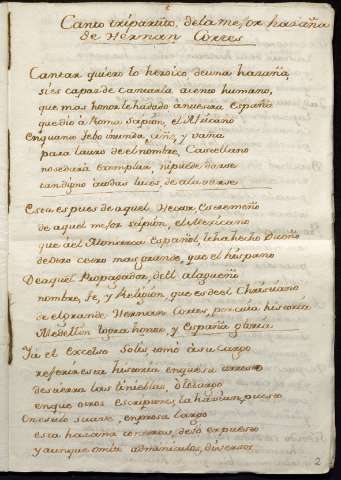 Canto tripartito, de la mejor hazaña
de Hernan Cortes
Cantar quiero lo heroico de una hazaña,
si es capaz de cantarla acento humano,
que mas honor le ha dado à nuestra España
que dio à Roma Scipion, el Africano
En quanto Febo inunda, ciñe, y vaña
para lauro de el nombre, Castellano
no se dará exemplar, ni puede darse
tan digno à todas luces, de alavarse
Esta es pues de aquel Hector Estremeño
de aquel mejor scipion, el Mexicano
que à el Monarca Español, le ha hecho Dueño
de otro cetro mas grande, que el hispano
De aquel Propagador, de el alagueño
nombre, fe, y Religion, que es de el Christiano
de el grande Hernan Cortes, por cuia historia
Medellin logra honor, y España gloria.
Ya el Excelso Solis, tomò à su cargo
referir esta historia en que su
destierra las tinieblas, ò letargo
en que otros escriptores, la havian, puesto
En estilo suave, en prosa largo
esta hazaña
y aunque omite adminiculos, diversos
2